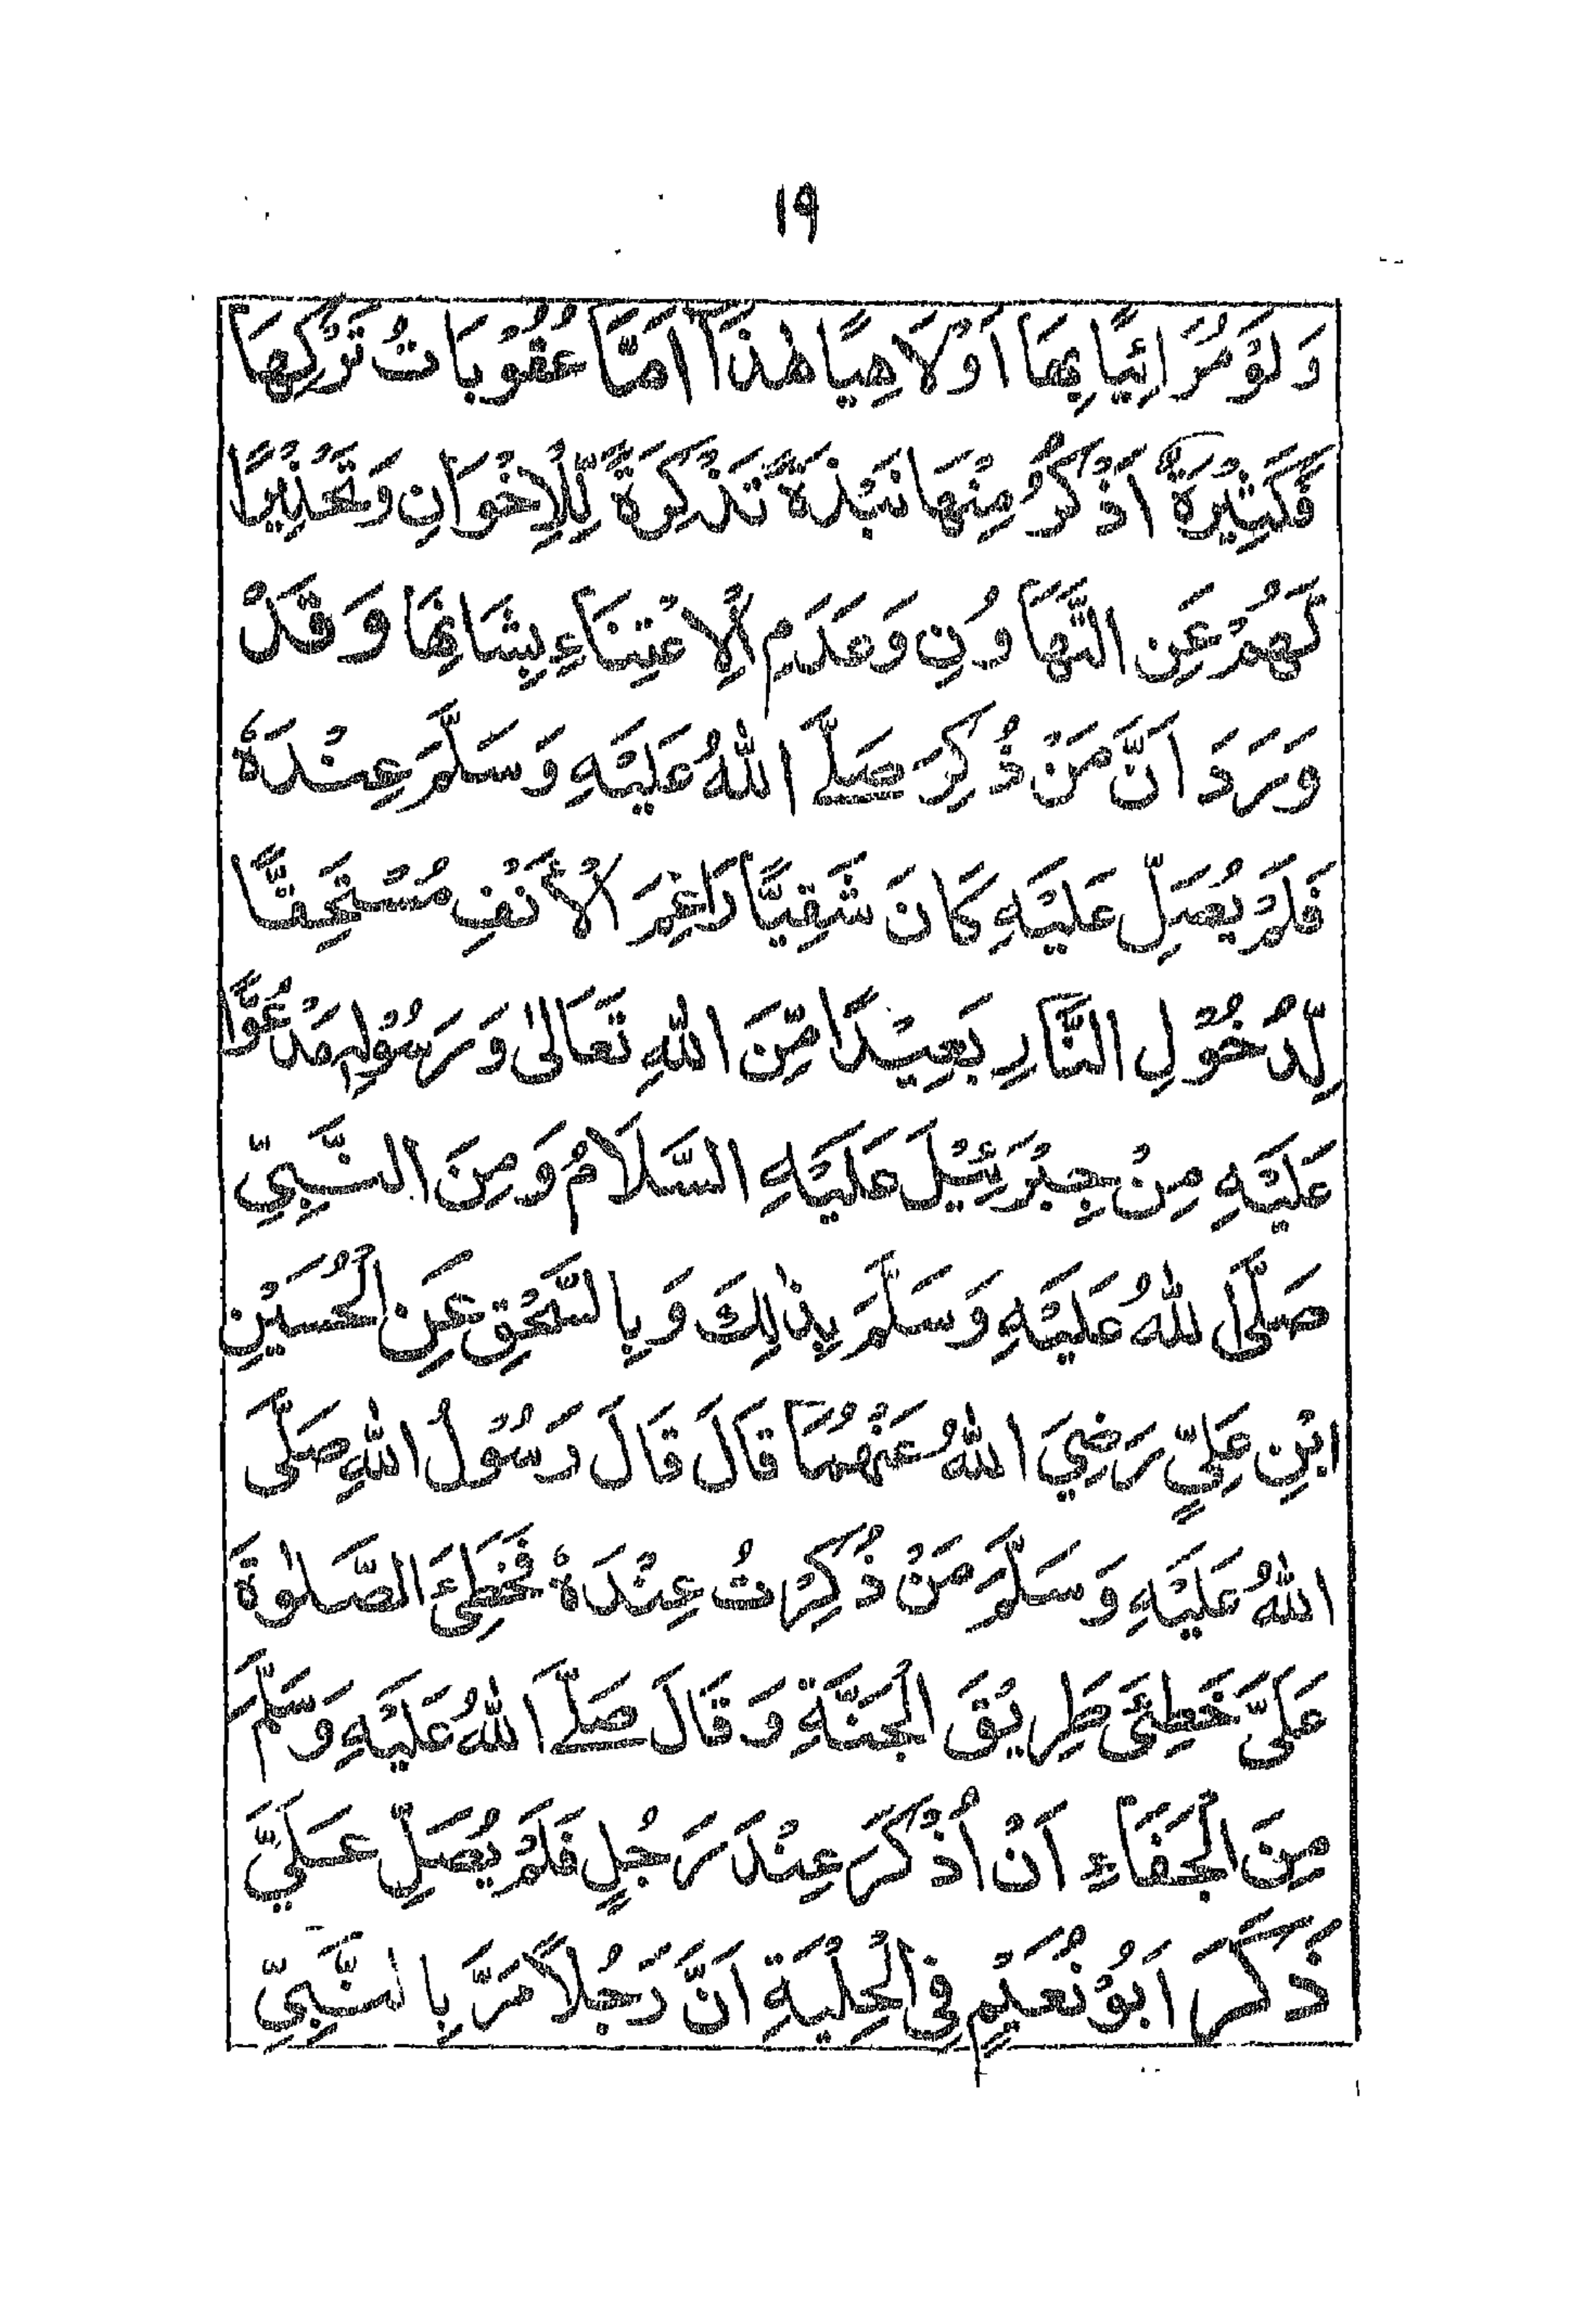 ۱۹
وَلَوْ مُرَائِيًا بِهَا اَوْ لَاهِيًا هٰذَا اَمَّا عُقُوْبَاتُ تَرْكِهَا
فَكَثِيْرَةٌ اَذْكُرُ مِنْهَا نَبْذَةً تَذْكِرَةً لِّلْاِخْوَانِ وَتَحْذِيْرًا
لَهُمْ عَنِ التَّهَاوُنِ وَعَدَمِ الْاِعْتِنَاءِ بِشَانِهَا وَقَدْ
وَرَدَ اَنَّ مَنْ ذُكِرَ صَلَّے اللّٰهُ عَلَيْهِ وَسَلَّمَ عِنْدَهٗ
فَلَمْ يُصَلِّ عَلَيْهِ كَانَ شَقِيًّا رَاغِمَ الْأَنْفِ مُسْتَحِقًّا
لِّدُخُوْلِ النَّارِ بَعِيْدًا مِّنَ اللّٰهِ تَعَالٰى وَرَسُوْلِهٖ مَدْعُوًّا
عَلَيْهِ مِنْ جِبْرَئِيْلَ عَلَيْهِ السَّلَامُ وَمِنَ النَّبِيِّ
صَلَّى اللّٰهُ عَلَيْهِ وَسَلَّمَ بِذٰلِكَ وَبِالسَّحْقِ عَنِ الْحُسَيْنِ
ابْنِ عَلِيٍّ رَضِيَ اللّٰهُ عَنْهُمَا قَالَ قَالَ رَسُوْلُ اللّٰهِ صَلَّى
اللّٰهُ عَلَيْهِ وَسَلَّمَ مَنْ ذُكِرْتُ عِنْدَهٗ فَخَطِئَ الصَّلٰوةَ
عَلَىَّ خَطِئَ طَرِيْقَ الْجَنَّةِ وَقَالَ صَلَّے اللّٰهُ عَلَيْهِ وَسَلَّمَ
مِنَ الْجَفَاءِ اَنْ اُذْكَرَ عِنْدَ رَجُلٍ فَلَمْ يُصَلِّ عَلَيَّ
ذَكَرَ اَبُوْ نُعَيْمٍ فِي الْحِلْيَةِ اَنَّ رَجُلًا مَرَّ بِالنَّبِيِّ